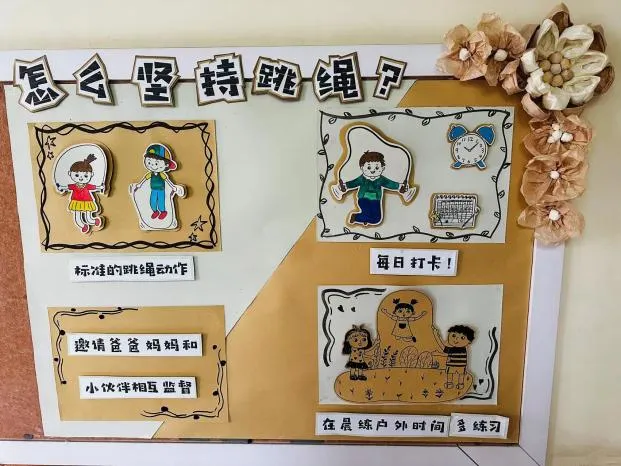 怎么坚持跳绳？
标准的跳绳动作
每日打卡！
邀请爸爸妈妈和
小伙伴相互监督
在晨练户外时间多练习